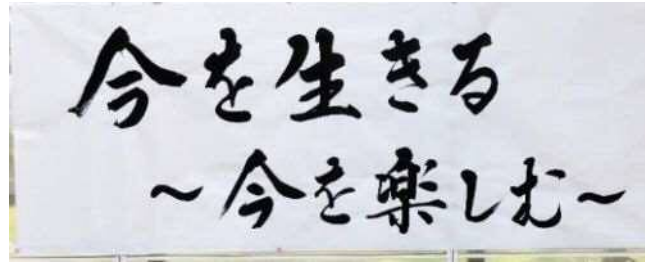 今を生きる
～今を楽しむ～